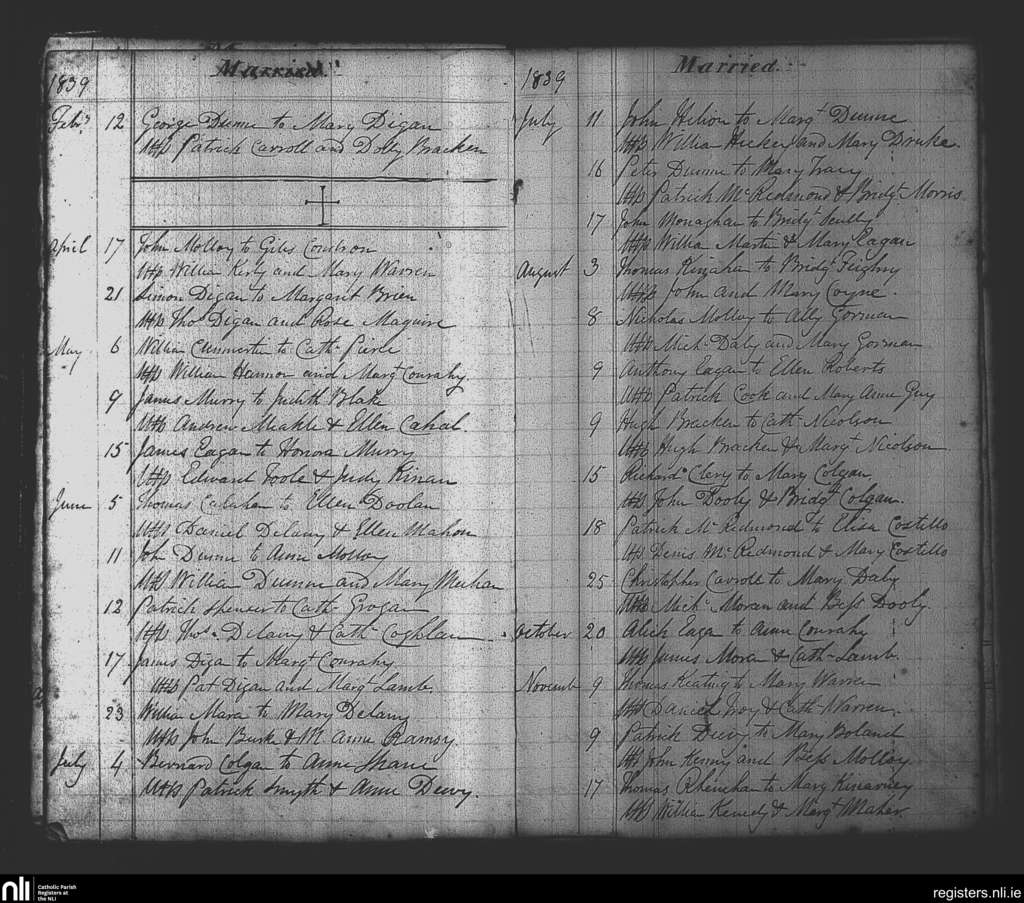 Married
1839
Feby 12 George Dunne to Mary Digan
Witts Patrick Carroll and Dolly Bracken
April 17 John Molloy to Giles Coulson
Witts William Kirly and Mary Warren
21 Simon Digan to Margaret Brien
Witts Thos Digan and Rose Maguire
May 6 William to Cath Pierle
Witts William Hannon and Margt Conrahy
9 James Murry to Judith Blake
Witts Andrew Meakle & Ellen Cahal.
15 James Eagan to Honora Murry
Witts Edward Toole & Judy Kinan
June 5 Thomas Calahan to Ellen Doolan
Witts Daniel Delany & Ellen Mahon
11 John Dunne to Anne Molloy
Witts William Dunne and Mary Meehan
12 Patrick Spenser to Cath Grogan
Witts Thos Delany & Cath Coghlan
17 James Diga to Margt Conrahy
Witts Pat Digan and Margt Lamb
23 William Mara to Mary Delany
Witts John Burke & M Anne Ramsy
July 4 Bernard Colgan to Anne Shane
Witts Patrick Smyth & Anne Deevy.
Married
1839
July 11 John Hilion to Margt Dunne
Witts Willia Hickey and Mary Drake.
16 Peter Dunne to Mary Tracy
Witts Patrick McRedmond & Bridgt Morris
17 John Monaghan to Bridgt
Witts Willia Martin & Mary Eagan
August 3 Thomas Kinaha to Bridgt Feighry
Witts John and Mary Coyne.
8 Nicholas Molloy to Ally Gorman
Witts Mich Daly and Mary Gorman
9 Anthony Eagan to Ellen Roberts
Witts Patrick Cook and Mary Anne Guy
9 Hugh Bracken to Cath Nicolson
Witts Hugh Bracken & Margt Nicolson
15 Richard Clery to Mary Colgan
Witts John Dooly & Bridgt Colgan.
18 Patrick McRedmond to Elisa Costello
Witts Denis McRedmond & Mary Costello
25 Christopher Carroll to Mary Daly
Witts Michl Moran and Bess Dooly.
October 20 Alick Eaga to Anne Conrahy
Witts James Mora & Cath Lamb.
Novemb 9 Thomas Keating to Mary Warren
Witts Daniel Troy & Cath Warren.
9 Patrick Deevy to Mary Boland
Witts John Kenny and Bess Molloy
17 Thomas Rheinehan to Mary Kinarney
Witts William Kenedy & Margt Maher.
nli
Catholic Parish
Registers at
the NLI
registers.nli.ie